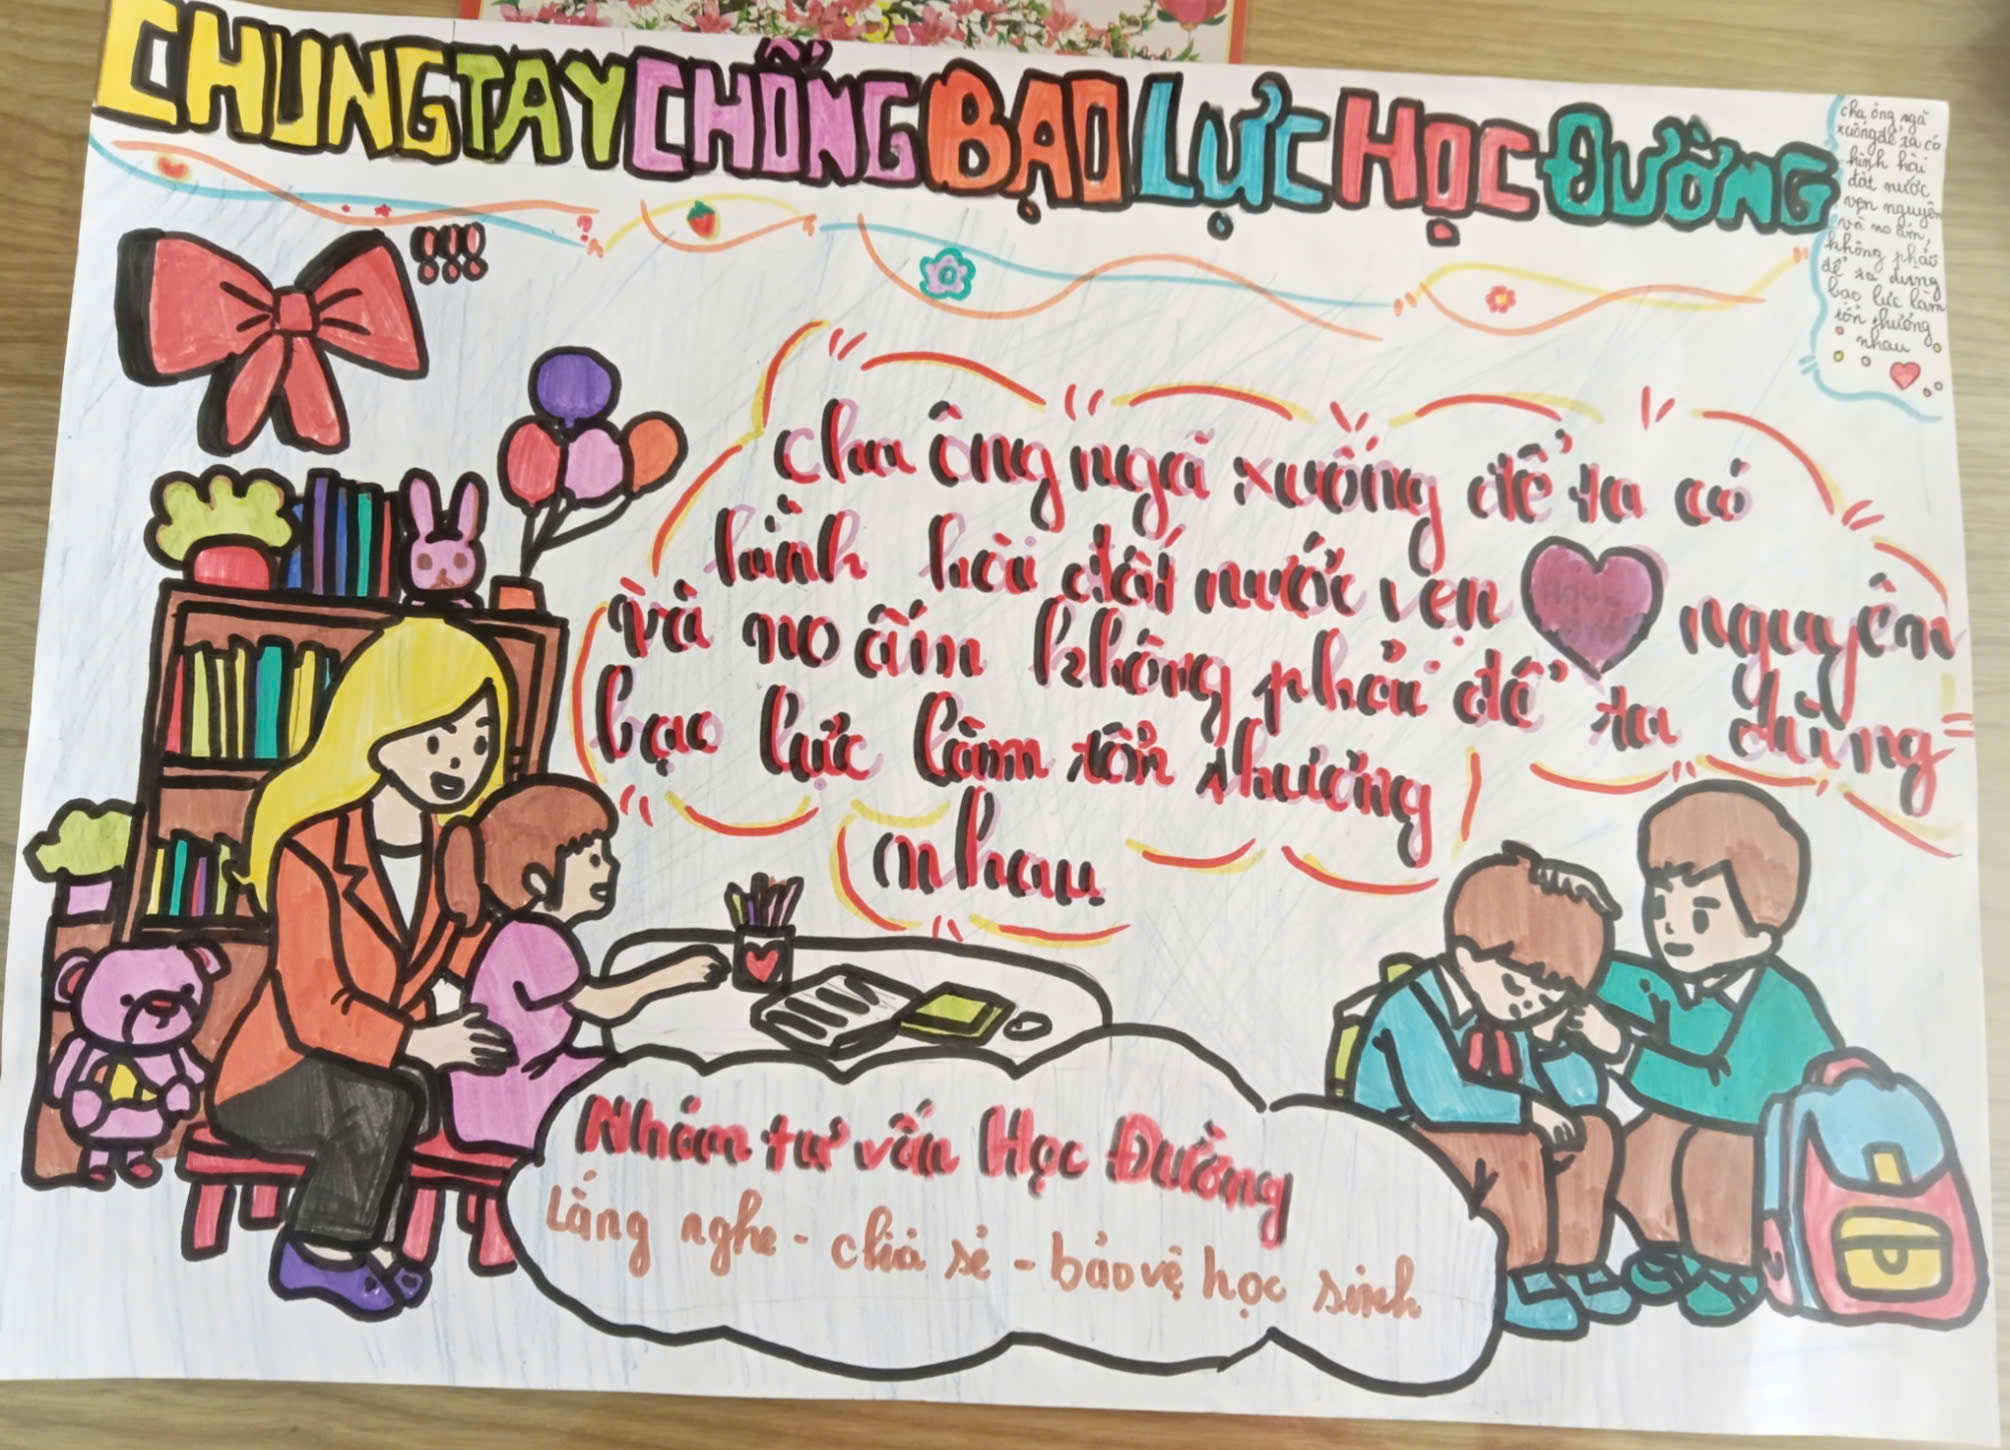 CHUNG TAY CHỐNG BẠO LỰC HỌC ĐƯỜNG
!!!
cha ông ngã
xuống để ta có
hình hài
đất nước
vẹn nguyên
và no ấm,
không phải
để ta dùng
bạo lực làm
tổn thương
nhau
cha ông ngã xuống để ta có
hình hài đất nước vẹn nguyên
và no ấm không phải để ta dùng
bạo lực làm tổn thương
nhau
Nhóm tư vấn Học Đường
Lắng nghe - chia sẻ - bảo vệ học sinh